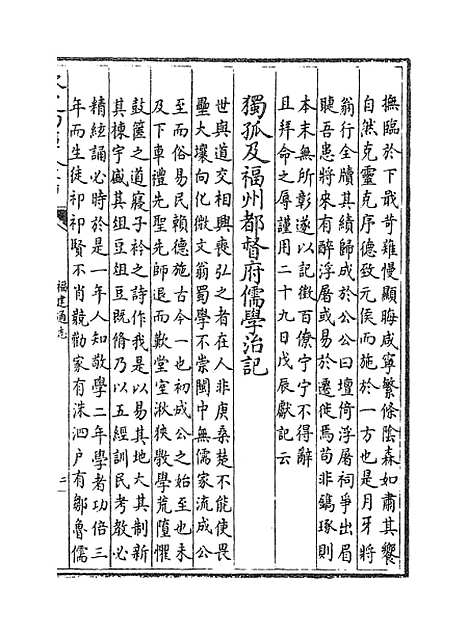 撫臨於下戢苛雍慢顯晦咸寧繁條陰森如肅其饗
自然克靈克序德致元侯而施於一方也是月牙將
翁行全牘其績歸成於公公曰壇倚浮屠祠爭出眉
睫吾患將來有醉浮屠或易於遷徙焉苟非鐫琢則
本末無所彰遂以記徵百僚宁宁不得辭
且拜命之辱謹用二十九日戊辰獻記云
獨孤及福州都督府儒學治記
世與道交相興喪弘之者在人非庚桑楚不能使畏
壘大壤向化微文翁蜀學不崇閩中無儒家流成公
至而俗易民賴德施古今一也初成公之始至也未
及下車禮先聖先師退而歎堂室湫狹斆學荒墮懼
鼓篋之道寢子衿之詩作我是以易其地大其制新
其棟宇盛其俎豆俎豆既脩乃以五經訓民考教必
精絃誦必時於是一年人知敬學二年學者功倍三
年而生徒祁祁賢不肖競勸家有洙泗户有鄒魯儒
福建通志
二